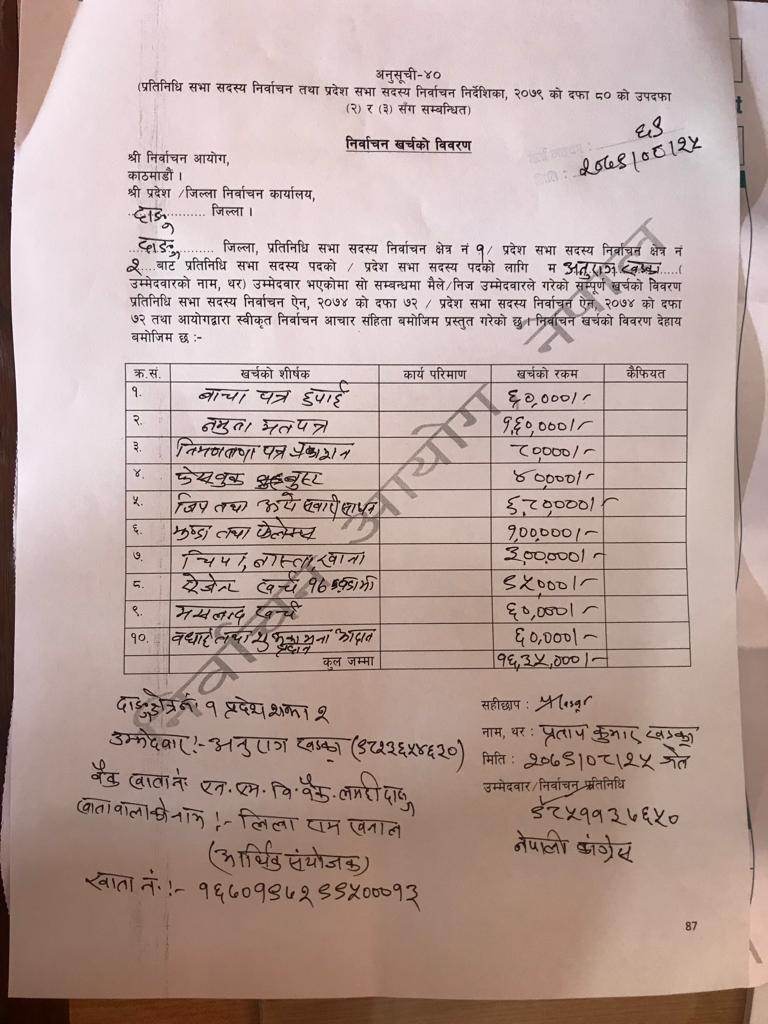 अनुसूची-४०
(प्रतिनिधि सभा सदस्य निर्वाचन तथा प्रदेश सभा सदस्य निर्वाचन निर्देशिका, २०७९ को दफा ८० को उपदफा
(२) र (३) सँग सम्बन्धित)
६९
२०७९/०८/२५
निर्वाचन खर्चको विवरण
श्री निर्वाचन आयोग,
काठमाडौं ।
श्री प्रदेश /जिल्ला निर्वाचन कार्यालय,
दाङ जिल्ला ।
दाङ जिल्ला, प्रतिनिधि सभा सदस्य निर्वाचन क्षेत्र नं १/ प्रदेश सभा सदस्य निर्वाचन क्षेत्र नं
२....बाट प्रतिनिधि सभा सदस्य पदको / प्रदेश सभा सदस्य पदको लागि म अनुराग खड्का.....(
उम्मेदवारको नाम, थर) उम्मेदवार भएकोमा सो सम्बन्धमा मैले/निज उम्मेदवारले गरेको सम्पूर्ण खर्चको विवरण
प्रतिनिधि सभा सदस्य निर्वाचन ऐन, २०७४ को दफा ७२ / प्रदेश सभा सदस्य निर्वाचन ऐन, २०७४ को दफा
७२ तथा आयोगद्वारा स्वीकृत निर्वाचन आचार संहिता बमोजिम प्रस्तुत गरेको छु । निर्वाचन खर्चको विवरण देहाय
बमोजिम छ :-
क्र.सं. खर्चको शीर्षक कार्य परिमाण खर्चको रकम कैफियत
१. वाचा पत्र छपाई ६०,०००/-
२. नमुना मतपत्र १,६०,०००/-
३. पत्र प्रकाशन ८०,०००/-
४. फेसबुक बुस्ट ४०,०००/-
५. जिप तथा अन्य सवारी साधन ६,८०,०००/-
६. झण्डा तथा फ्लेक्स १,००,०००/-
७. चिया, नास्ता, खाना ३,००,०००/-
८. खर्च ९५,०००/-
९. मसलन्द खर्च ६०,०००/-
१०. तथा शुभकामना आदान प्रदान ६०,०००/-
कुल जम्मा १६,३५,०००/-
दाङ क्षेत्र नं. १ प्रदेश सभा २
उम्मेदवार :- अनुराग खड्का (९८२३६५४६२०)
बैंक खाता नं. एन. एम. वि. बैंक. लमही दाङ
खातावालाको नाम :- लिला राम खनाल
(आर्थिक संयोजक)
खाता नं. :- १६७०१९७२९९५०००१३
सहीछाप :
नाम, थर : प्रताप कुमार खड्का
मिति : २०७९/०८/२५ गते
उम्मेदवार/निर्वाचन प्रतिनिधि
९८५११३७६५०
नेपाली कांग्रेस
87
निर्वाचन आयोग नेपाल